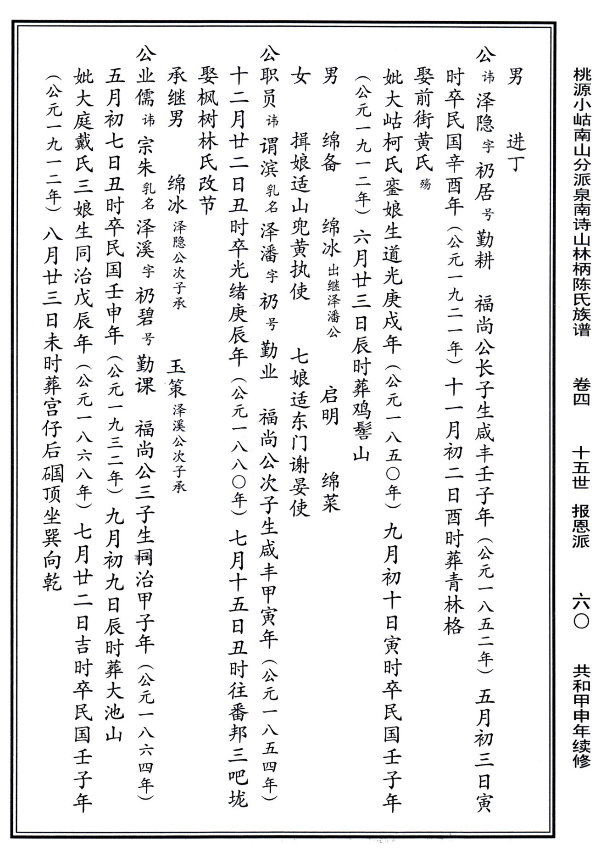 桃源小岵南山分派泉南诗山林柄陈氏族谱 卷四 十五世 报恩派 六〇 共和甲申年续修
男 进丁
公讳泽隐字礽居号勤耕 福尚公长子生咸丰壬子年（公元一八五二年）五月初三日寅
时卒民国辛酉年（公元一九二一年）十一月初二日酉时葬青林格
娶前街黄氏殇
妣大岵柯氏銮娘生道光庚戍年（公元一八五〇年）九月初十日寅时卒民国壬子年
（公元一九一二年）六月廿三日辰时葬鸡髻山
男 绵备 绵冰出继泽潘公 启明 绵菜
女 揖娘适山兜黄执使 七娘适东门谢晏使
公职员讳谓滨乳名泽潘字礽号勤业 福尚公次子生咸丰甲寅年（公元一八五四年）
十二月廿二日丑时卒光绪庚辰年（公元一八八〇年）七月十五日丑时往番邦三吧垅
娶枫树林氏改节
承继男 绵冰泽隐公次子承 玉策泽溪公次子承
公业儒讳宗朱乳名泽溪字礽碧号勤课 福尚公三子生祠治甲子年（公元一八六四年）
五月初七日丑时卒民国壬申年（公元一九三二年）九月初九日辰时葬大池山
妣大庭戴氏三娘生同治戊辰年（公元一八六八年）七月廿二日吉时卒民国壬子年
（公元一九一二年）八月廿三日未时葬宫仔后碅顶坐巽向乾